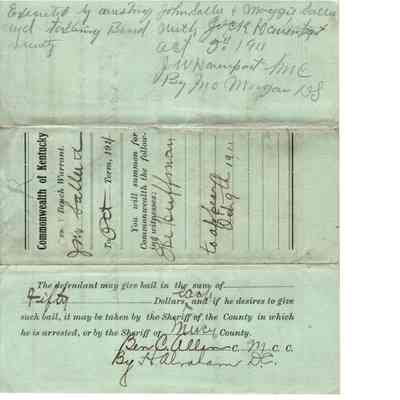 Executed by arresting John Sallee & Maggie Sallee
and taking Bond with Jack Davenport
surety
Oct 2nd 1911
J W Davenport
By Mo Morgan DS
Commonwealth of Kentucky
vs. } Bench Warrant.
Jno Sallee
To Oct Term, 1911
You will summon for
Commonwealth the follow-
ing witnesses:
Joe Huffman
to appear
Oct 9th 1911
The defendant may give bail in the sum of
Fifty Dollars, each and if he desires to give
such bail, it may be taken by the Sheriff of the County in which
he is arrested, or by the Sheriff of County.
Ben C. Allen C. M. C. C.
By H Abraham D.C.